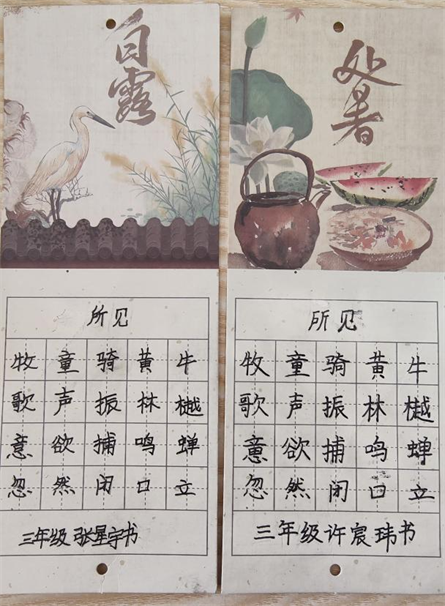 白露
所见
牧童骑黄牛
歌声振林樾
意欲捕鸣蝉
忽然闭口立
三年级 张星宇书
处暑
所见
牧童骑黄牛
歌声振林樾
意欲捕鸣蝉
忽然闭口立
三年级许宸玮书